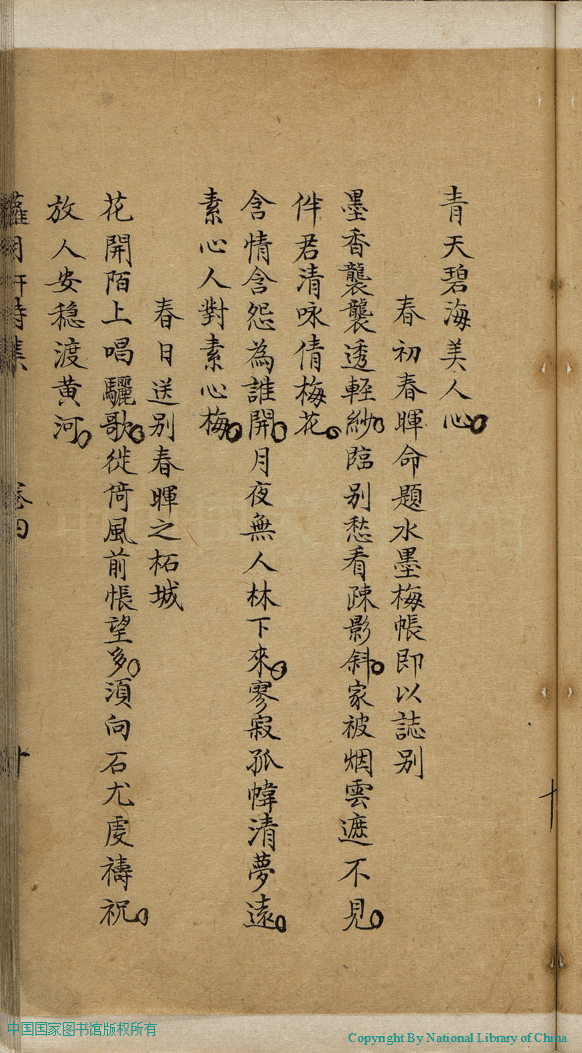 青天碧海美人心
春初春暉命題水墨梅帳即以誌别
墨香襲襲透輕紗臨别愁看疎影斜家被烟雲遮不見
伴君清咏倩梅花
含情含怨為誰開月夜無人林下來寥寂孤幃清夢遠
素心人對素心梅
春日送别春暉之柘城
花開陌上唱驪歌徙倚風前悵望多須向石尤虔禱祝
放人安穏渡黄河
月軒詩集 卷四 十
中国国家图书馆版权所有
Copyright By National Library of China